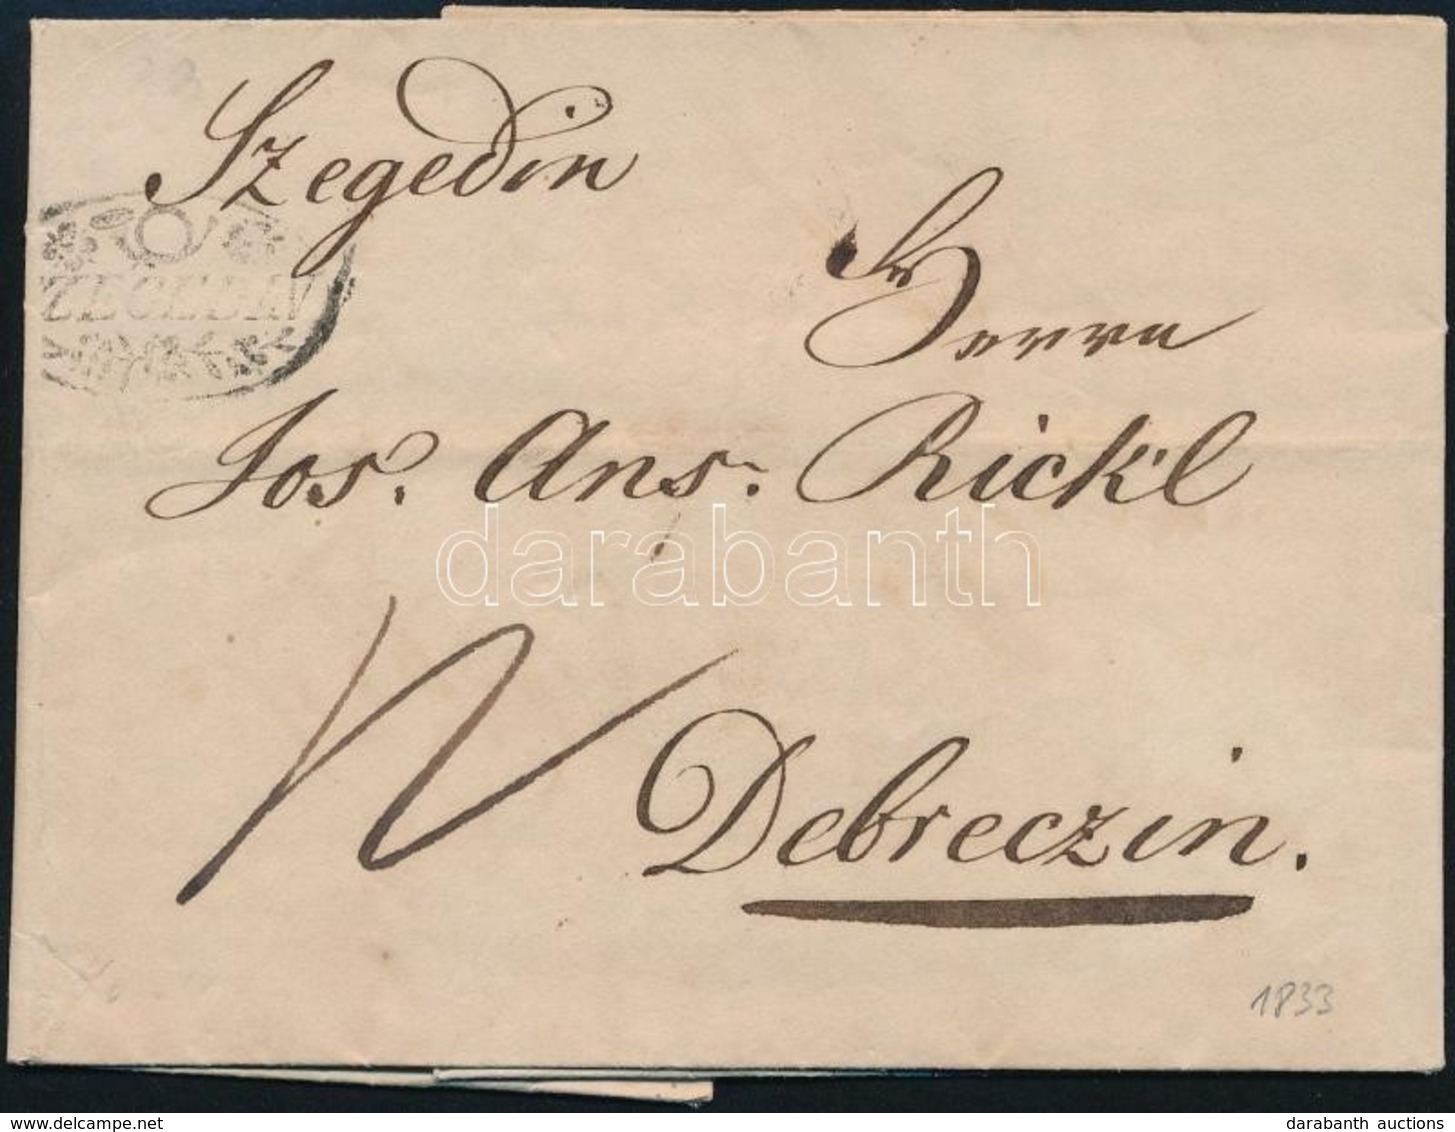 Szegedin
SZEGEDIN
Herrn
Jos. Ans. Rickl
darabanth
Debreczin.
1833
darabanth auctions
delcampe.net